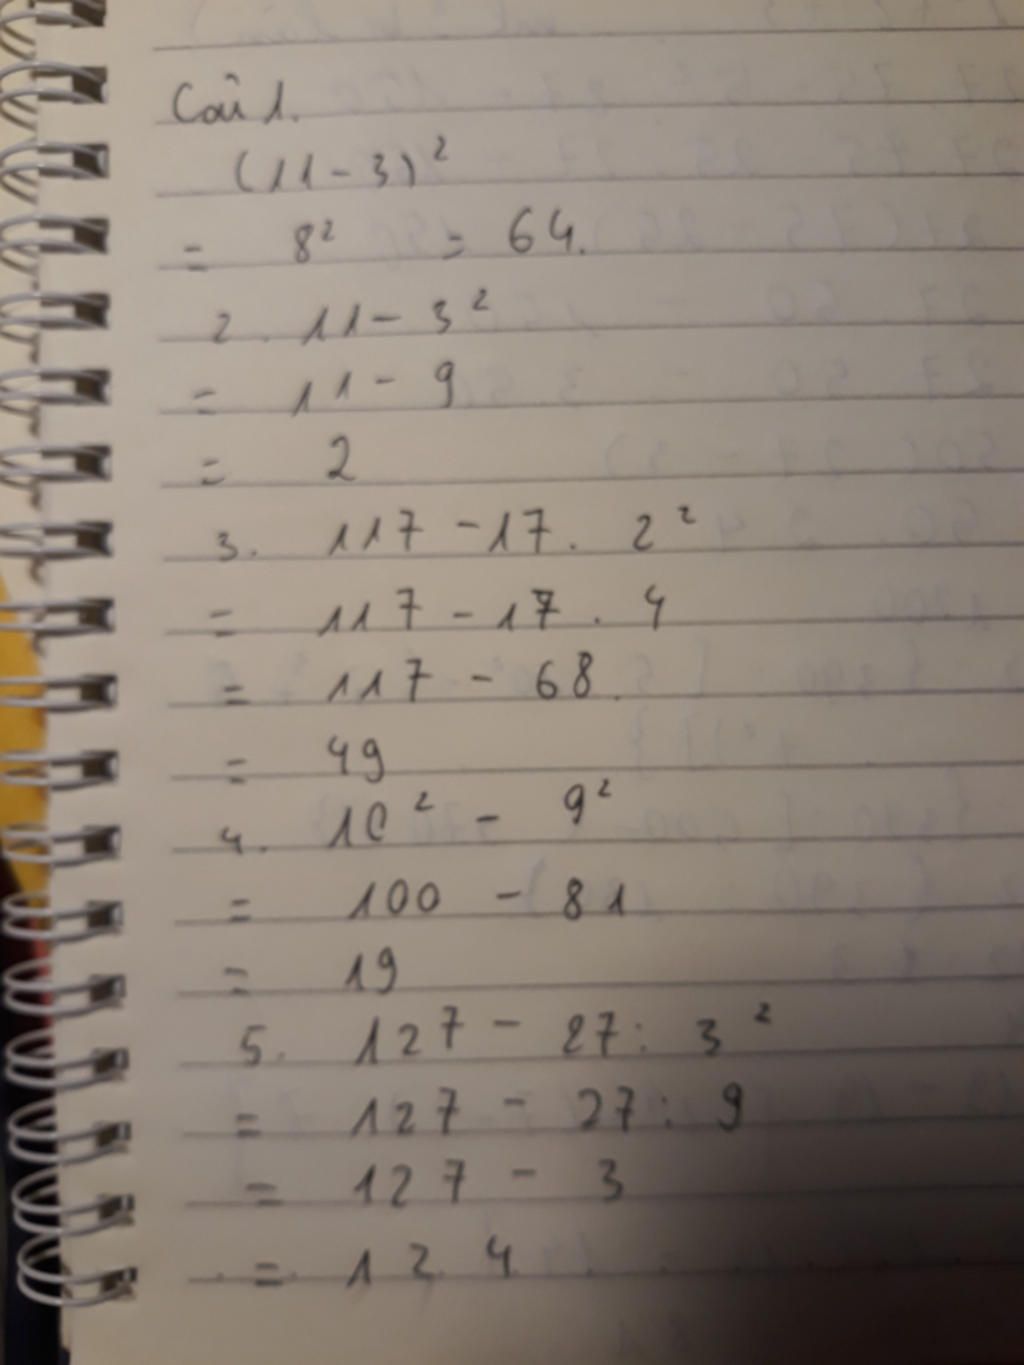 Câu 1.
(11-3)²
= 8² = 64.
2. 11-3²
= 11-9
= 2
3. 117-17. 2²
= 117-17. 4
= 117-68.
= 49
4. 10² - 9²
= 100 - 81
= 19
5. 127-27: 3²
= 127-27: 9
= 127-3
= 124